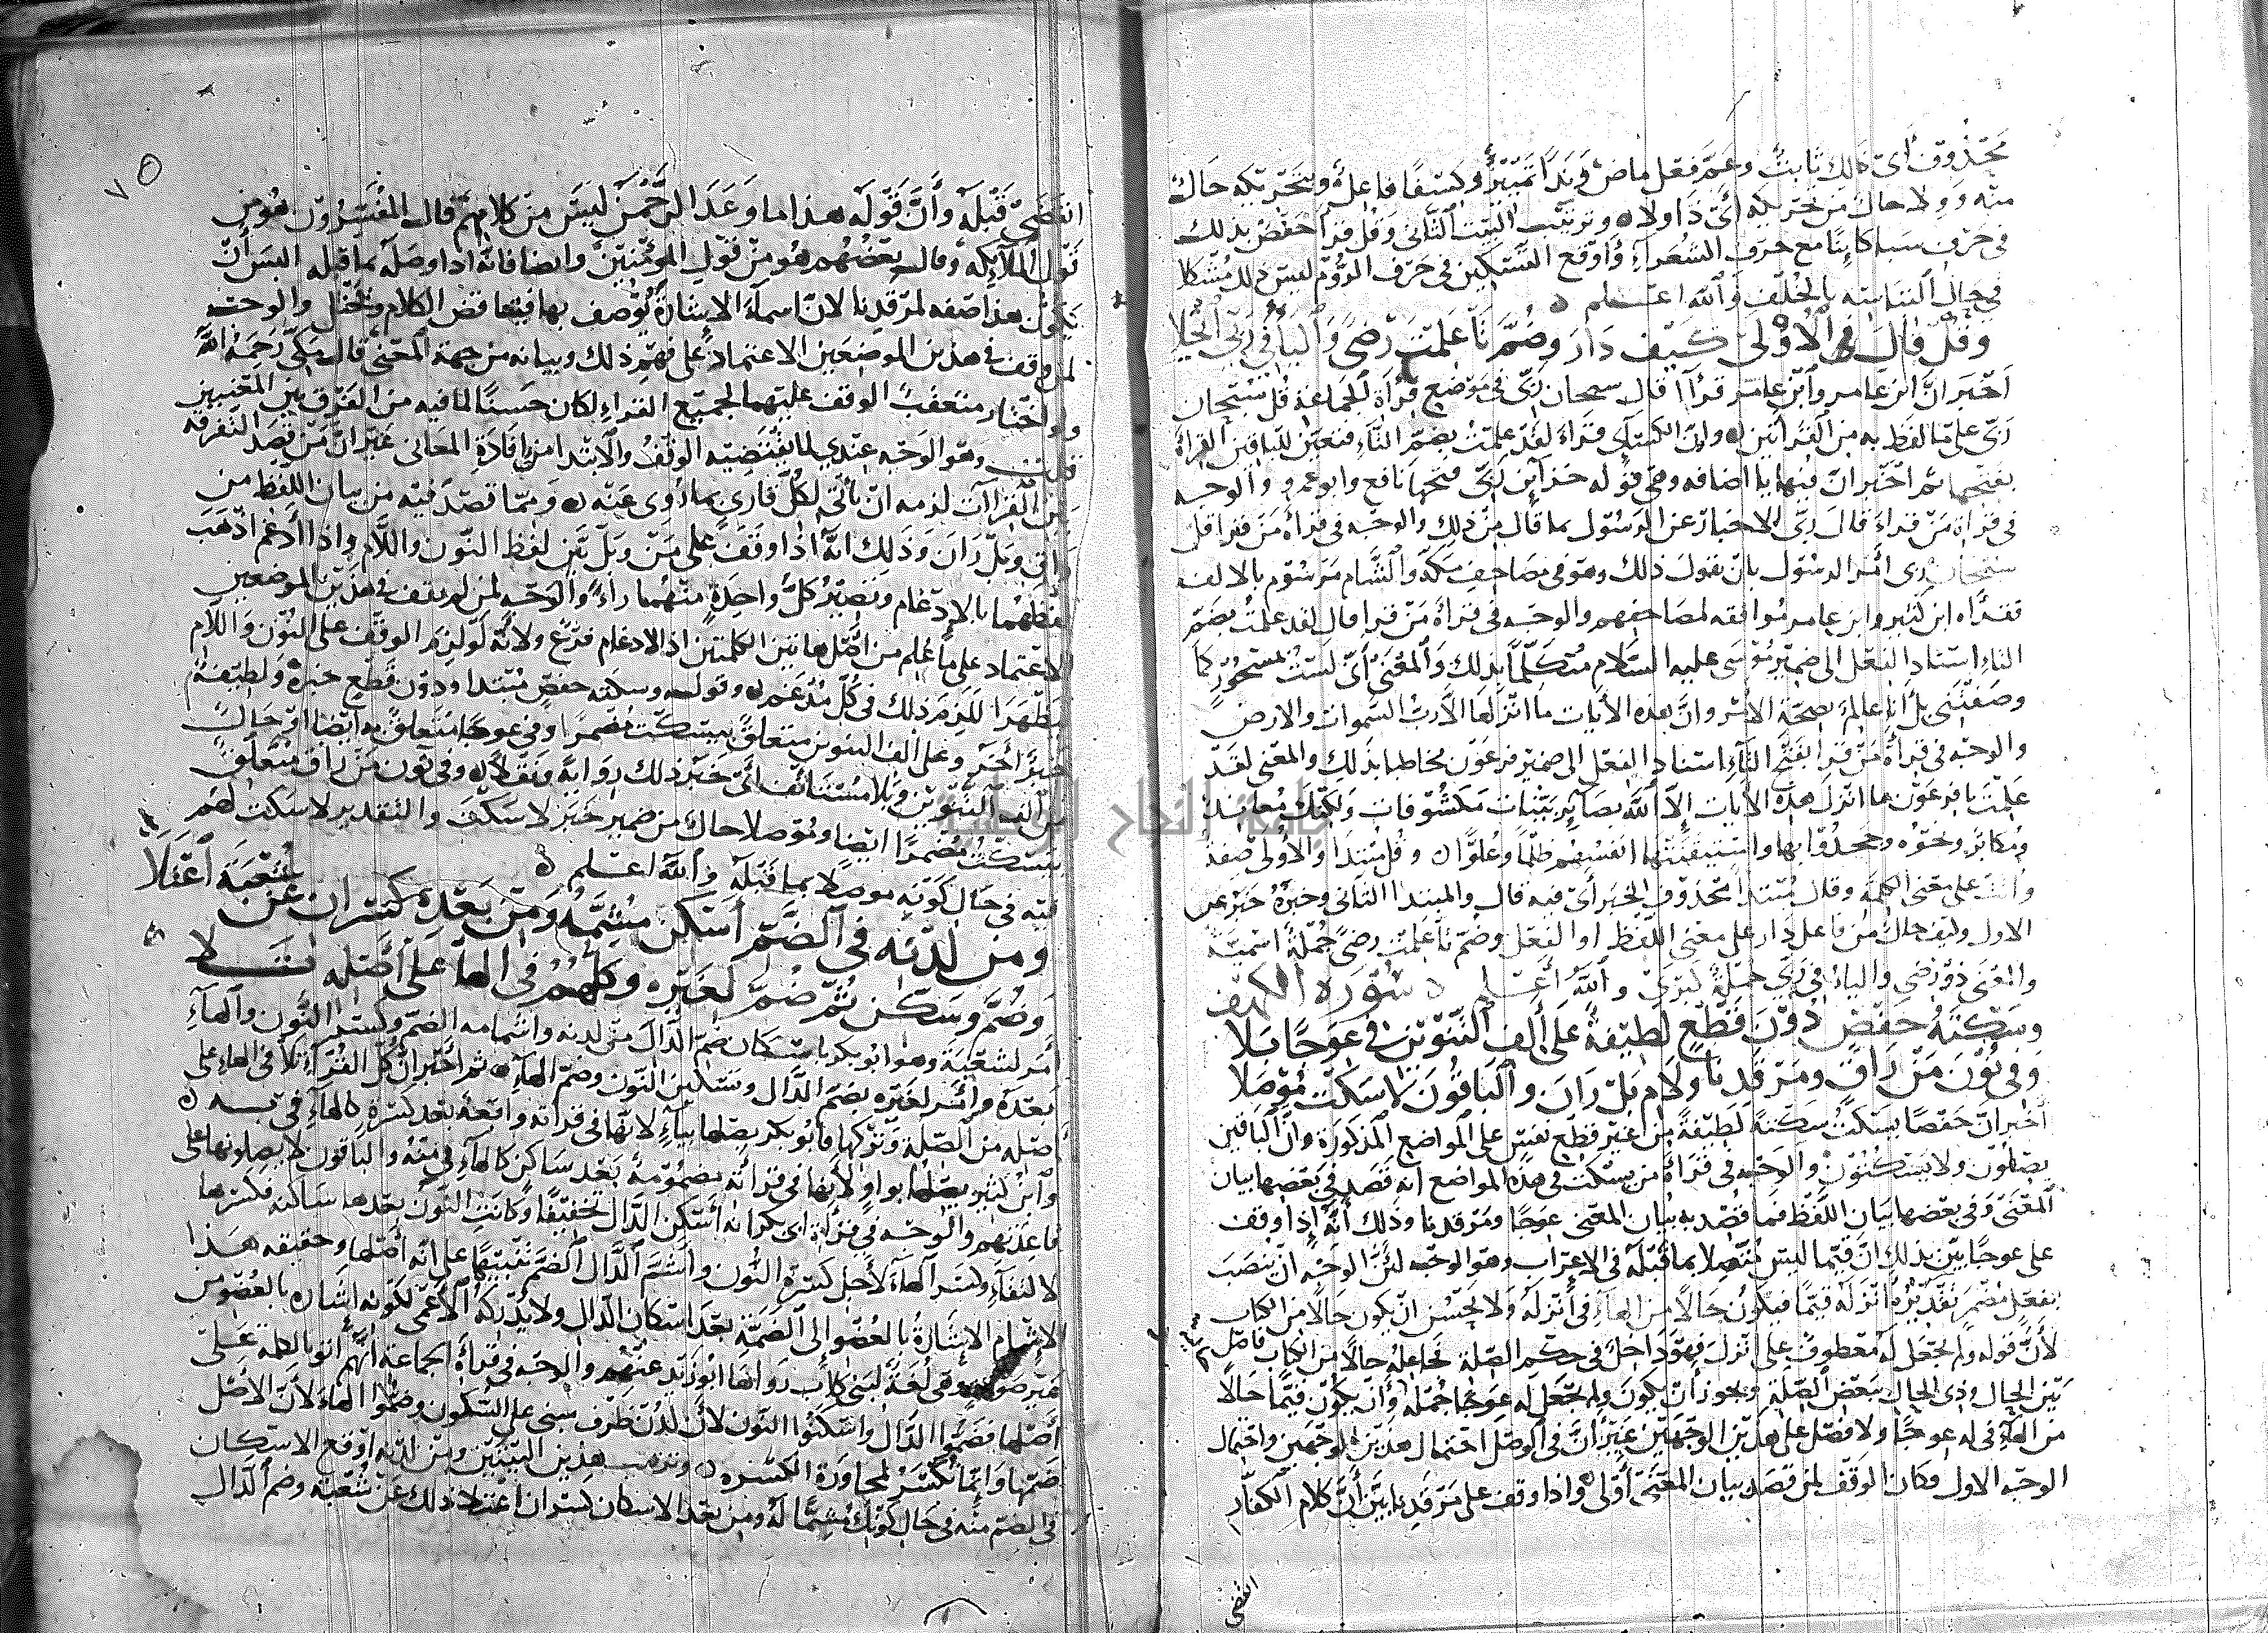 محذوف أى ذلك ثابت وعم فعل ماض وندا تمييز وكسفا فاعله وبتحريكه حال
منه وولا حال من تحريكه أى ذا ولاه وترتيب البيت الثانى وقل قرأ حفص بذلك
فى حرف سبا كاينا مع حرف الشعراء وأوقع التسكين فى حرف الروم ليس ذلك مشكلا
فى حال التباسه بالخلف والله اعلم
وقل قال فى الاولى كيف دار وضم تا علمت رضى والياء فى ربى انجلا
اخبر ان ابن عامر وابن عامر قرآ قال سبحان ربى فى موضع قرأة الجماعة قل سبحان
ربى على ما لفظ به من القرأتين وان الكسآى قرأ لقد علمت بضم التاء فتعين للباقين القراة
بفتحها ثم اخبر ان فيها يا اضافه وهى قوله خزآين ربى فتحها نافع وابو عمرو والوجه
فى قراة من قرا قال ربى الاخبار عن الرسول بما قال من ذلك والوجه فى قرأه من قرا قل
سبحان ربى أمر الرسول بان يقول ذلك وهو فى مصاحف مكة والشام مرسوم بالالف
فقرأه ابن كثير وابن عامر موافقه لمصاحفهم والوجه فى قرأة من قرا قال لقد علمت بضم
التاء اسناد الفعل الى ضمير موسى عليه السلام متكلما بذلك والمعنى أى لست بمسحور كما
وصفتنى بل انا عالم بصحة الأمر وان هذه الأيات ما انزلها الا رب السموات والارض
والوجه فى قرأة من قرا بفتح التاء اسناد الفعل الى ضمير فرعون مخاطبا بذلك والمعنى لقد
علمت يا فرعون ما انزل هذه الآيات الا الله بصآير بينات مكشوفات ولكنك معاند
ومكابر ونحوه وجحدوا بها واستيقنتها انفسهم ظلما وعلوا وقل مبتدا والأولى صفة
وأنث على معنى الكلمة وقال مبتدأ محذوف الخبر أى فيه قال والمبتدا الثانى وخبره خبر عن
الاول وكيف حال من فاعل دار على معنى اللفظ او الفعل وضم تا علمت رضى جملة اسمية
والمعنى ذو رضى والياء فى ربى جملة كبرى والله أعلم سورة الكهف
وسكتة حفص دون قطع لطيفة على ألف التنوين فى عوجا بلا
وفى نون من راق ومرقدنا ولام بل ران والباقون لا سكت موصلا
أخبر ان حفصا يسكت سكتة لطيفة من غير قطع نفس على المواضع المذكورة وان الباقين
يصلون ولا يسكتون والوجه فى قرأة من يسكت فى هذه المواضع انه قصد فى بعضها بيان
المعنى وفى بعضها بيان اللفظ فمما قصد به بيان المعنى عوجا ومرقدنا وذلك أنه إذا وقف
على عوجا بين بذلك ان قيما ليس متصلا بما قبله فى الاعراب وهو الوجه لئن الوجه ان ينصب
بفعل مضمر تقديره أنزله قيما فيكون حالا من الهآء فى أنزله ولا يحسن ان يكون حالا من الكتاب
لأن قوله ولم يجعل له معطوف على انزل فهو داخل فى حكم الصلة فجاعله حالا من الكتاب فاصل
بين الحال وذى الحال ببعض الصلة ويجوز أن يكون ولم يجعل له عوجا جملة وأن يكون قيما حالا
من الهآء فى له عوجا ولا فصل على هذين الوجهين غير أن فى الوصل احتمال هذين الوجهين واحتمال
الوجه الاول فكان الوقف لمن قصد بيان المعنى أولى واذا وقف على مرقدنا بين أن كلام الكفار
انقضى
٧٥
انقضى قبله وأن قوله هذا ما وعد الرحمن ليس من كلامهم قال المفسرون هو من
قول الملآيكه وقال بعضهم هو من قول المؤمنين وايضا فانه اذا وصله بما قبله البس أن
يكون هذا صفه لمرقدنا لان اسمآء الإشارة يوصف بها فيتناقض الكلام ويختل والوجه
لمن وقف فى هذين الموضعين الاعتماد على فهم ذلك وبيانه من جهة المعنى قال مكى رحمه الله
ولو اختار متعقب الوقف عليهما لجميع القراء لكان حسنا لما فيه من الفرق بين المعنيين
قلت وهو الوجه عندي لما يقتضيه الوقف والابتدا من افادة المعانى غير ان من قصد التفرقه
بين القراآت لزمه ان يأتى لكل قارئ بما روى عنه ومما قصد فيه من بيان اللفظ من
راق وبل ران وذلك انه اذا وقف على من وبل بين لفظ النون واللام واذا أدغم اذهب
لفظهما بالإدغام وتصير كل واحدة منهما راء والوجه لمن لم يقف فى هذين الموضعين
الاعتماد على ما علم من اصل هاتين الكلمتين اذ الادغام فرع ولأنه لو لزم الوقف على النون واللام
ليظهرا للزم ذلك فى كل مدغم وقوله وسكته حفص مبتدا ودون قطع خبره ولطيفة
خبر أخر وعلى الف التنوين متعلق بيسكت مضمرا وفى عوجا متعلق به أيضا او حال
من الف التنوين وبلا مستأنف أى خبر ذلك رواية ونقلا وفى نون من راق متعلق
بيسكت مضمرا ايضا وموصلا حال من ضمير خبر لا سكت والتقدير لا سكت لهم
فيه فى حال كونه موصلا بما قبله والله اعلم
ومن لدنه فى الضم أسكن مشمه ومن بعده كسران عن شعبة اعتلا
وضم وسكن ثم ضم لغيره وكلهم فى الها على أصله تلا
أمر لشعبة وهو ابو بكر باسكان ضم الدال من لدنه واشمامه الضم وكسر النون والهآء
بعده وأمر لغيره بضم الدال وتسكين النون وضم الهآء ثم أخبر ان كل القرآء تلا فى الهاء على
أصله من الصلة وتركها فأبو بكر يصلها بيآء لانها فى قرأته واقعة بعد كسرة كالهآء فى به
وابن كثير يصلها بواو لأنها فى قرأته مضمومة بعد ساكن كالهآء فى منه والباقون لا يصلونها على
قاعدتهم والوجه فى قرأة ابى بكر انه أسكن الدال تخفيفا وكانت النون بعدها ساكنه فكسرها
لالتقآء وكسر الهآء لأجل كسرة النون وأشم الدال الضم تنبيها على انه أصلها وحقيقه هذا
الإشمام الإشارة بالعضو الى الضمة بعد اسكان الدال ولا يدركه الأعمى لكونه إشارة بالعضو من
غير صوت وهى لغة لبنى كلاب رواها ابو زيد عنهم والوجه فى قرأة الجماعة أنهم أتوا بالكلمة على
أصلها فضموا الدال واسكنوا النون لأن لدن ظرف بنى على السكون وضموا الهاء لأن الأصل
ضمها وانما تكسر لمجاورة الكسرة وترتيب هذين البيتين ومن لدنه أوقع الاسكان
فى الضم منه فى حال كونك مشما له ومن بعد الاسكان كسران اعتلا ذلك عن شعبة وضم الدال